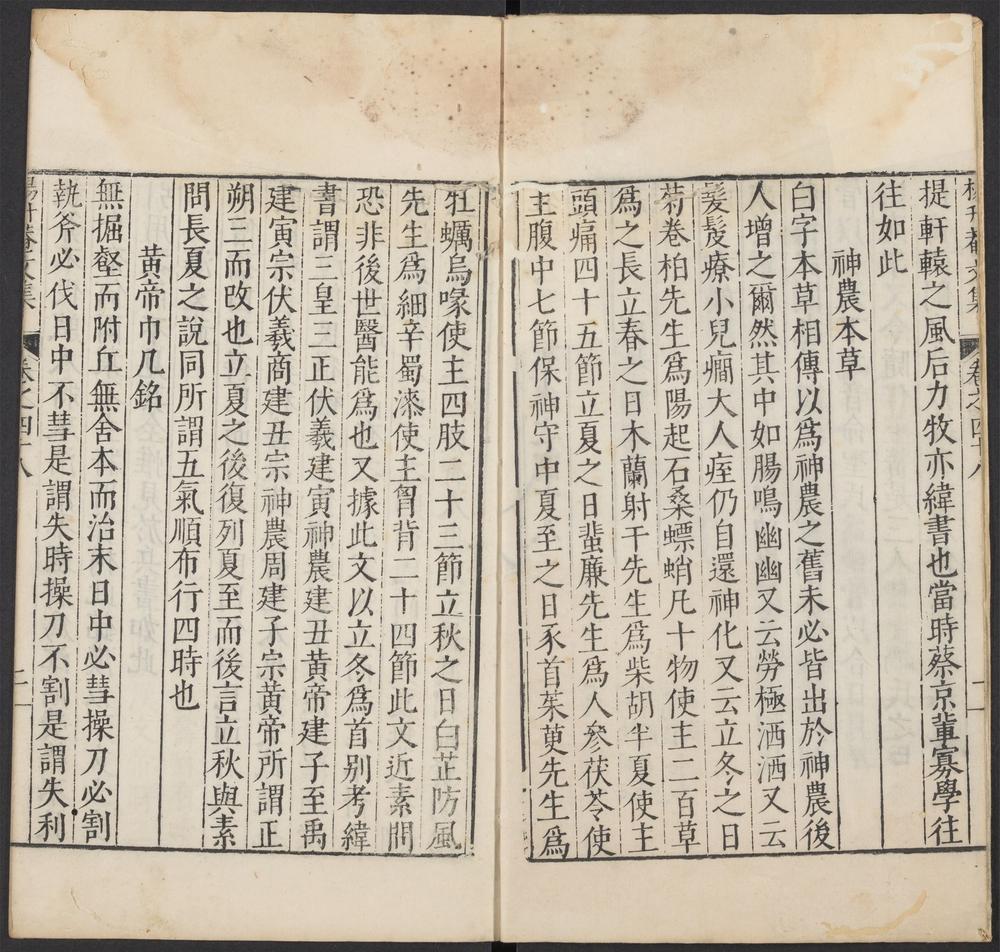 楊升菴文集 卷之四十八 二
提軒轅之風后力牧亦緯書也當時蔡京軰寡學往
往如此
神農本草
白字本草相傳以爲神農之舊未必皆出於神農後
人增之爾然其中如腸鳴幽幽又云勞極洒洒又云
髲髮療小兒癇大人痓仍自還神化又云立冬之日
菊卷柏先生爲陽起石桑螵蛸凡十物使主二百草
爲之長立春之日木蘭射干先生爲柴胡半夏使主
頭痛四十五節立夏之日蜚廉先生爲人參茯苓使
主腹中七節保神守中夏至之日豕首茱萸先生爲
牡蠣烏喙使主四肢二十三節立秋之日白芷防風
先生爲細辛蜀漆使主胷背二十四節此文近素問
恐非後世醫能爲也又據此文以立冬爲首别考緯
書謂三皇三正伏羲建寅神農建丑黄帝建子至禹
建寅宗伏羲商建丑宗神農周建子宗黄帝所謂正
朔三而改也立夏之後復列夏至而後言立秋與素
問長夏之說同所謂五氣順布行四時也
黄帝巾几銘
無掘壑而附丘無舍本而治末日中必彗操刀必割
執斧必伐日中不彗是謂失時操刀不割是謂失利
楊升菴文集 卷之四十八 二